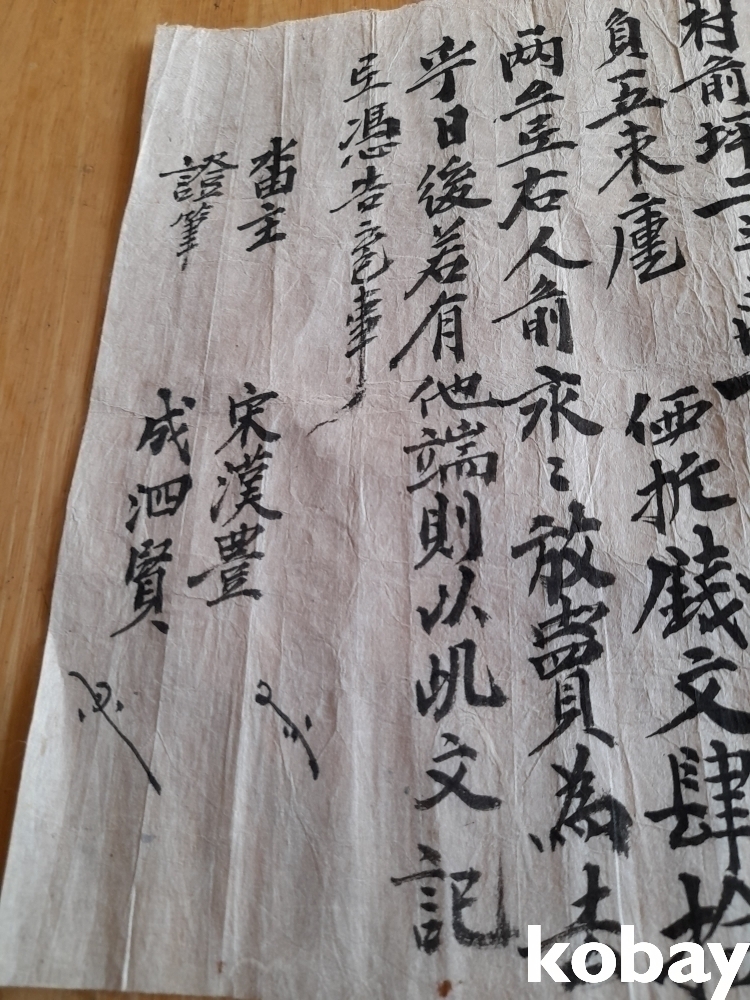 村前坪二
負五束廛 価折錢文肆拾
両준右人前永〻放賣為去
乎日後若有他端則以此文記
憑告官事
畓主 宋漢豊
證筆 成泗賢
kobay